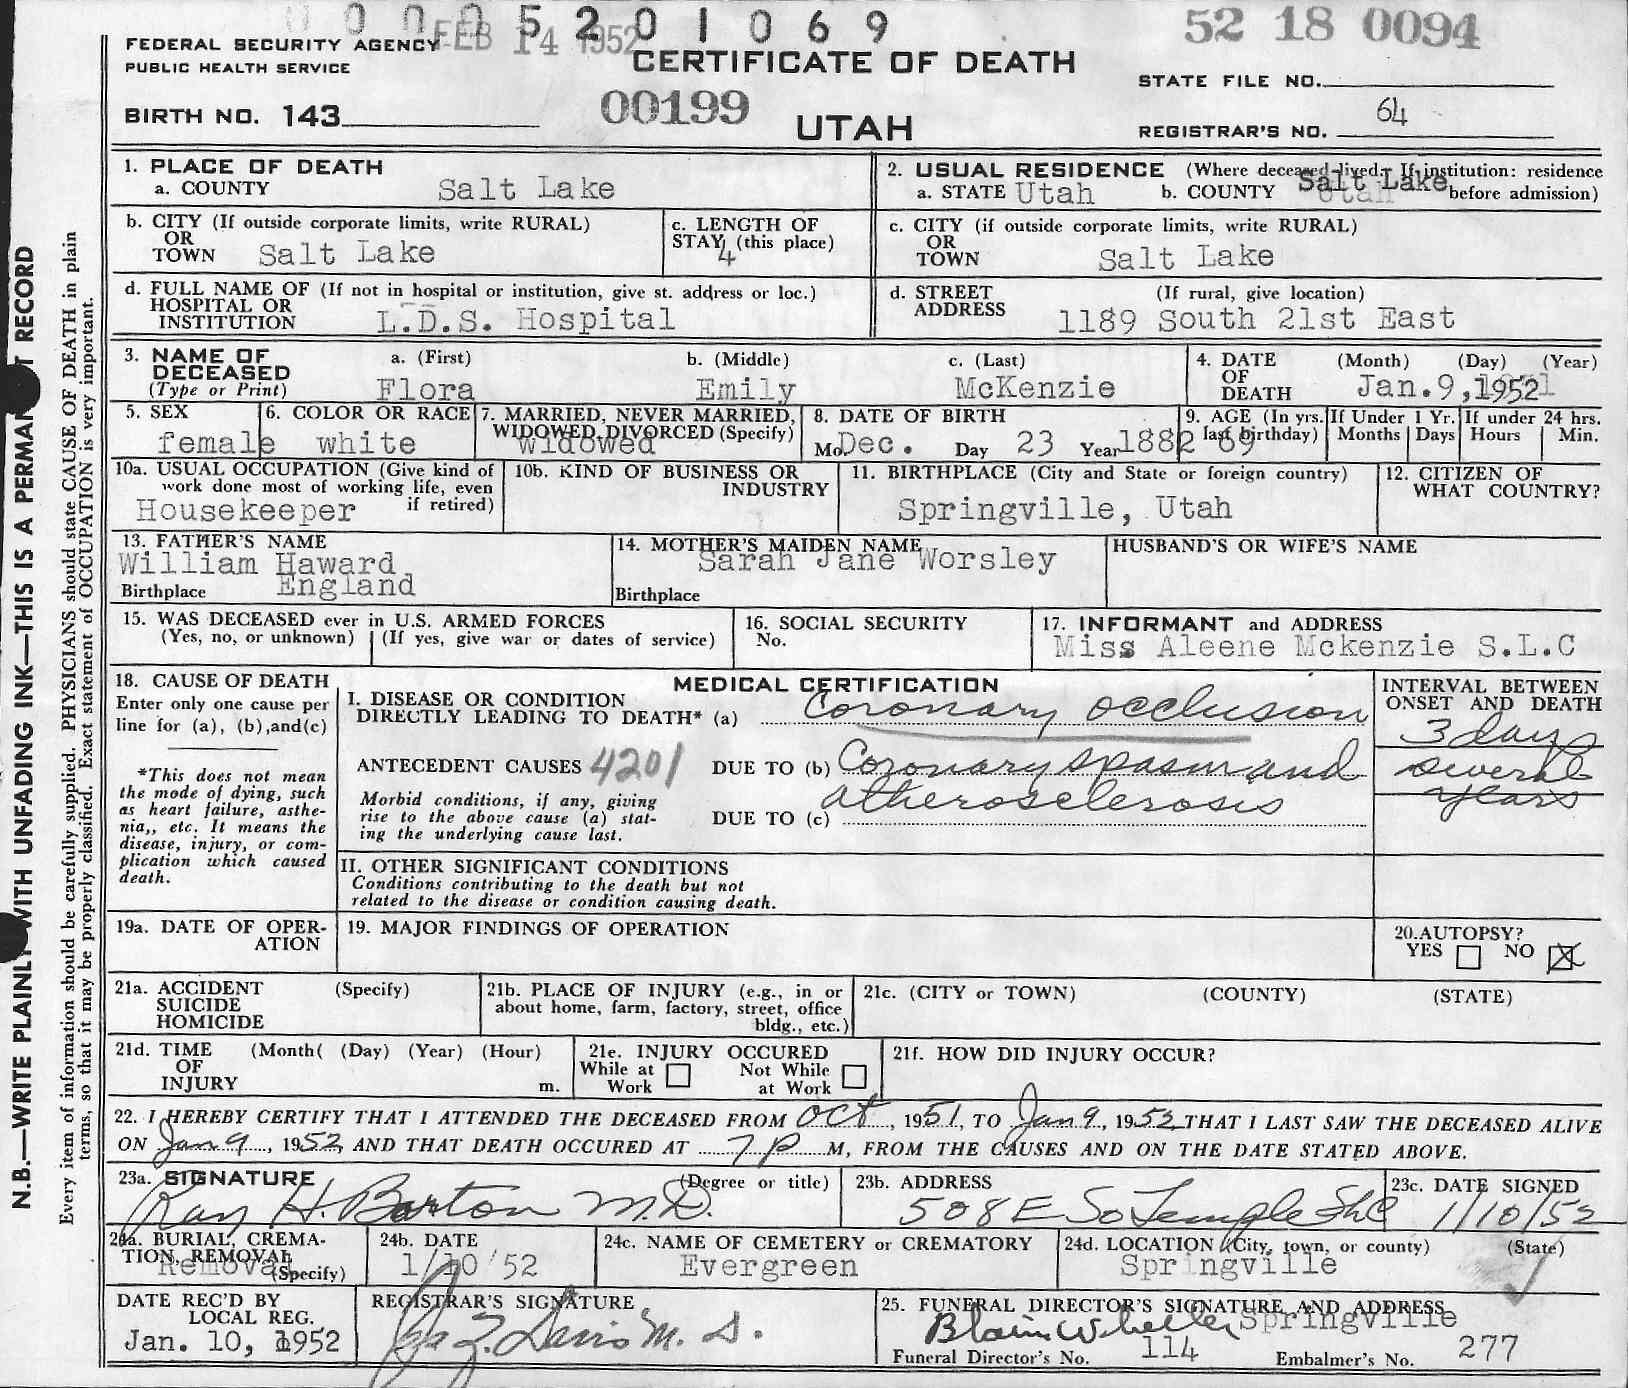 0 0 0 0 5 2 0 1 0 6 9
FEB 14 1952
52 18 0094
FEDERAL SECURITY AGENCY
PUBLIC HEALTH SERVICE
CERTIFICATE OF DEATH
STATE FILE NO.
BIRTH NO. 143
00199
UTAH
REGISTRAR'S NO. 64
1. PLACE OF DEATH
a. COUNTY Salt Lake
2. USUAL RESIDENCE (Where deceased lived. If institution: residence before admission)
a. STATE Utah b. COUNTY Salt Lake
b. CITY (If outside corporate limits, write RURAL)
OR
TOWN Salt Lake
c. LENGTH OF
STAY (this place)
4
c. CITY (if outside corporate limits, write RURAL)
OR
TOWN Salt Lake
d. FULL NAME OF (If not in hospital or institution, give st. address or loc.)
HOSPITAL OR
INSTITUTION L.D.S. Hospital
d. STREET (If rural, give location)
ADDRESS 1189 South 21st East
3. NAME OF
DECEASED
(Type or Print)
a. (First) b. (Middle) c. (Last)
Flora Emily McKenzie
4. DATE (Month) (Day) (Year)
OF
DEATH Jan.9,1952
5. SEX
female
6. COLOR OR RACE
white
7. MARRIED, NEVER MARRIED,
WIDOWED, DIVORCED (Specify)
widowed
8. DATE OF BIRTH
Mo. Dec. Day 23 Year 1882
9. AGE (In yrs.
last birthday)
69
If Under 1 Yr.
Months Days
If under 24 hrs.
Hours Min.
10a. USUAL OCCUPATION (Give kind of
work done most of working life, even
if retired)
Housekeeper
10b. KIND OF BUSINESS OR
INDUSTRY
11. BIRTHPLACE (City and State or foreign country)
Springville, Utah
12. CITIZEN OF
WHAT COUNTRY?
13. FATHER'S NAME
William Haward
Birthplace England
14. MOTHER'S MAIDEN NAME
Sarah Jane Worsley
Birthplace
HUSBAND'S OR WIFE'S NAME
15. WAS DECEASED ever in U.S. ARMED FORCES
(Yes, no, or unknown) (If yes, give war or dates of service)
16. SOCIAL SECURITY
No.
17. INFORMANT and ADDRESS
Miss Aleene Mckenzie S.L.C
18. CAUSE OF DEATH
Enter only one cause per
line for (a), (b),and(c)
*This does not mean
the mode of dying, such
as heart failure, asthe-
nia,, etc. It means the
disease, injury, or com-
plication which caused
death.
MEDICAL CERTIFICATION
I. DISEASE OR CONDITION
DIRECTLY LEADING TO DEATH* (a) Coronary occlusion
ANTECEDENT CAUSES 4201 DUE TO (b) Coronary spasm and
atherosclerosis
Morbid conditions, if any, giving
rise to the above cause (a) stat-
ing the underlying cause last.
DUE TO (c)
INTERVAL BETWEEN
ONSET AND DEATH
3 days
several
years
II. OTHER SIGNIFICANT CONDITIONS
Conditions contributing to the death but not
related to the disease or condition causing death.
19a. DATE OF OPER-
ATION
19. MAJOR FINDINGS OF OPERATION
20.AUTOPSY?
YES NO X
21a. ACCIDENT (Specify)
SUICIDE
HOMICIDE
21b. PLACE OF INJURY (e.g., in or
about home, farm, factory, street, office
bldg., etc.)
21c. (CITY or TOWN) (COUNTY) (STATE)
21d. TIME (Month( (Day) (Year) (Hour)
OF
INJURY m.
21e. INJURY OCCURED
While at Not While
Work at Work
21f. HOW DID INJURY OCCUR?
22. I HEREBY CERTIFY THAT I ATTENDED THE DECEASED FROM Oct, 1951, TO Jan 9, 1952 THAT I LAST SAW THE DECEASED ALIVE
ON Jan 9, 1952, AND THAT DEATH OCCURED AT 7 P M, FROM THE CAUSES AND ON THE DATE STATED ABOVE.
23a. SIGNATURE (Degree or title)
Ray H. Barton M.D.
23b. ADDRESS
508 E So Temple SLC
23c. DATE SIGNED
1/10/52
24a. BURIAL, CREMA-
TION, REMOVAL
(Specify)
Removal
24b. DATE
1/10/52
24c. NAME OF CEMETERY or CREMATORY
Evergreen
24d. LOCATION (City, town, or county) (State)
Springville
DATE REC'D BY
LOCAL REG.
Jan. 10, 1952
REGISTRAR'S SIGNATURE
Davis M. D.
25. FUNERAL DIRECTOR'S SIGNATURE AND ADDRESS
Blain Wheeler Springville
Funeral Director's No. 114 Embalmer's No. 277
N.B.—WRITE PLAINLY WITH UNFADING INK—THIS IS A PERMANENT RECORD
Every item of information should be carefully supplied. PHYSICIANS should state CAUSE OF DEATH in plain
terms, so that it may be properly classified. Exact statement of OCCUPATION is very important.